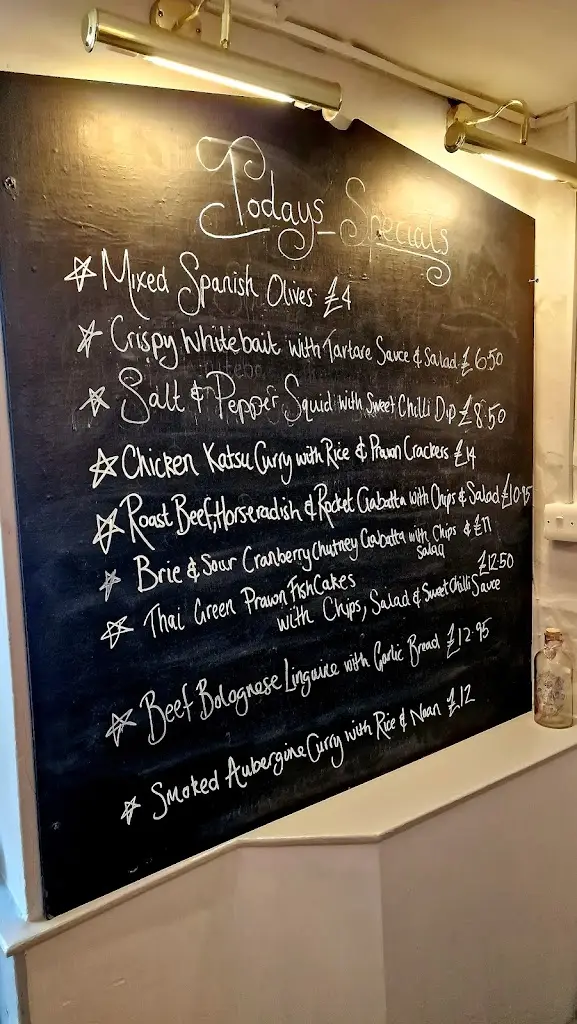 Todays Specials
Mixed Spanish Olives £4
Crispy Whitebait with Tartare Sauce & Salad £6.50
Salt & Pepper Squid with Sweet Chilli Dip £8.50
Chicken Katsu Curry with Rice & Prawn Crackers £14
Roast Beef, Horseradish & Rocket Ciabatta with Chips & Salad £10.95
Brie & Sour Cranberry Chutney Ciabatta with Chips & £11
Salad
Thai Green Prawn FishCakes £12.50
with Chips, Salad & Sweet Chilli Sauce
Beef Bolognese Linguine with Garlic Bread £12.95
Smoked Aubergine Curry with Rice & Naan £12